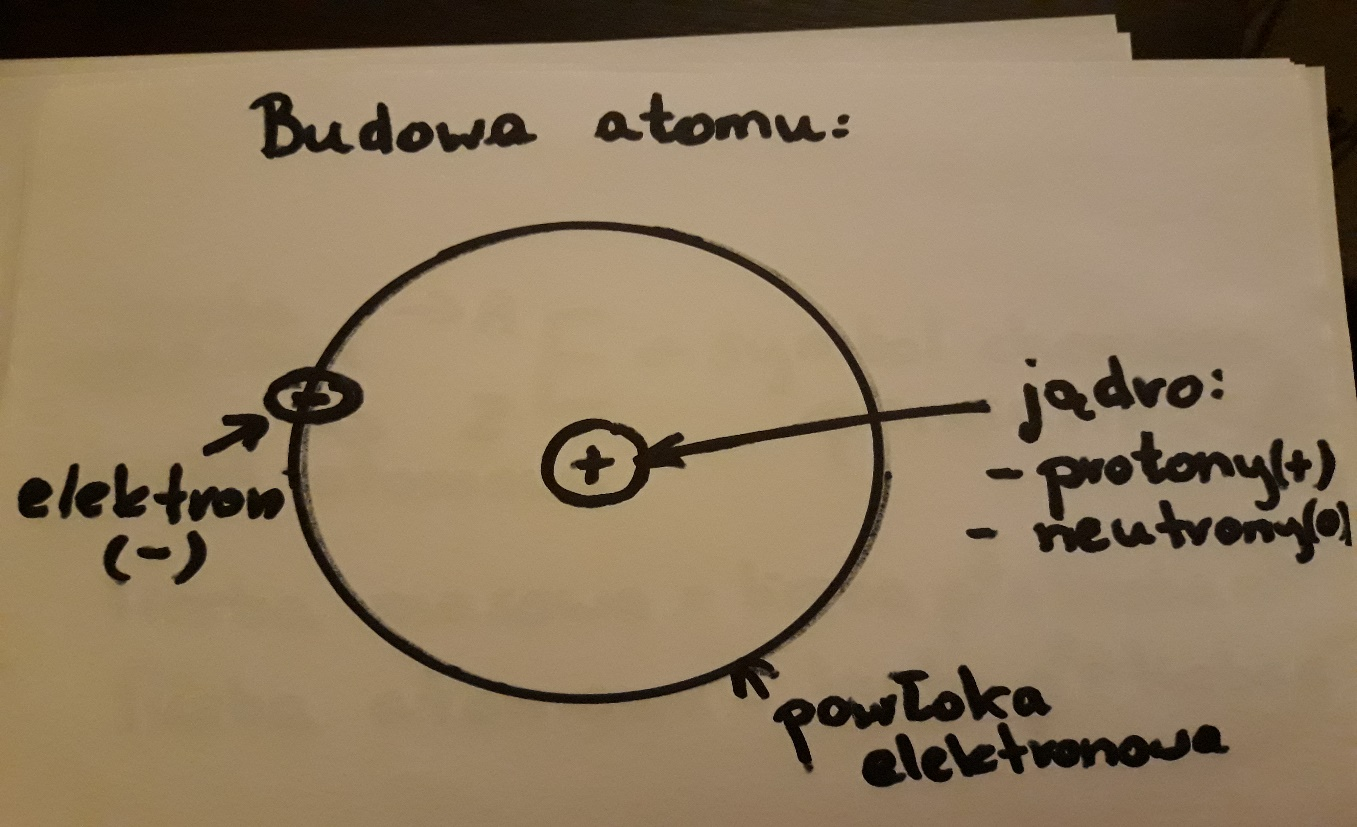 Budowa atomu:
+
-
elektron
(-)
jądro:
- protony(+)
- neutrony(0)
powłoka
elektronowa